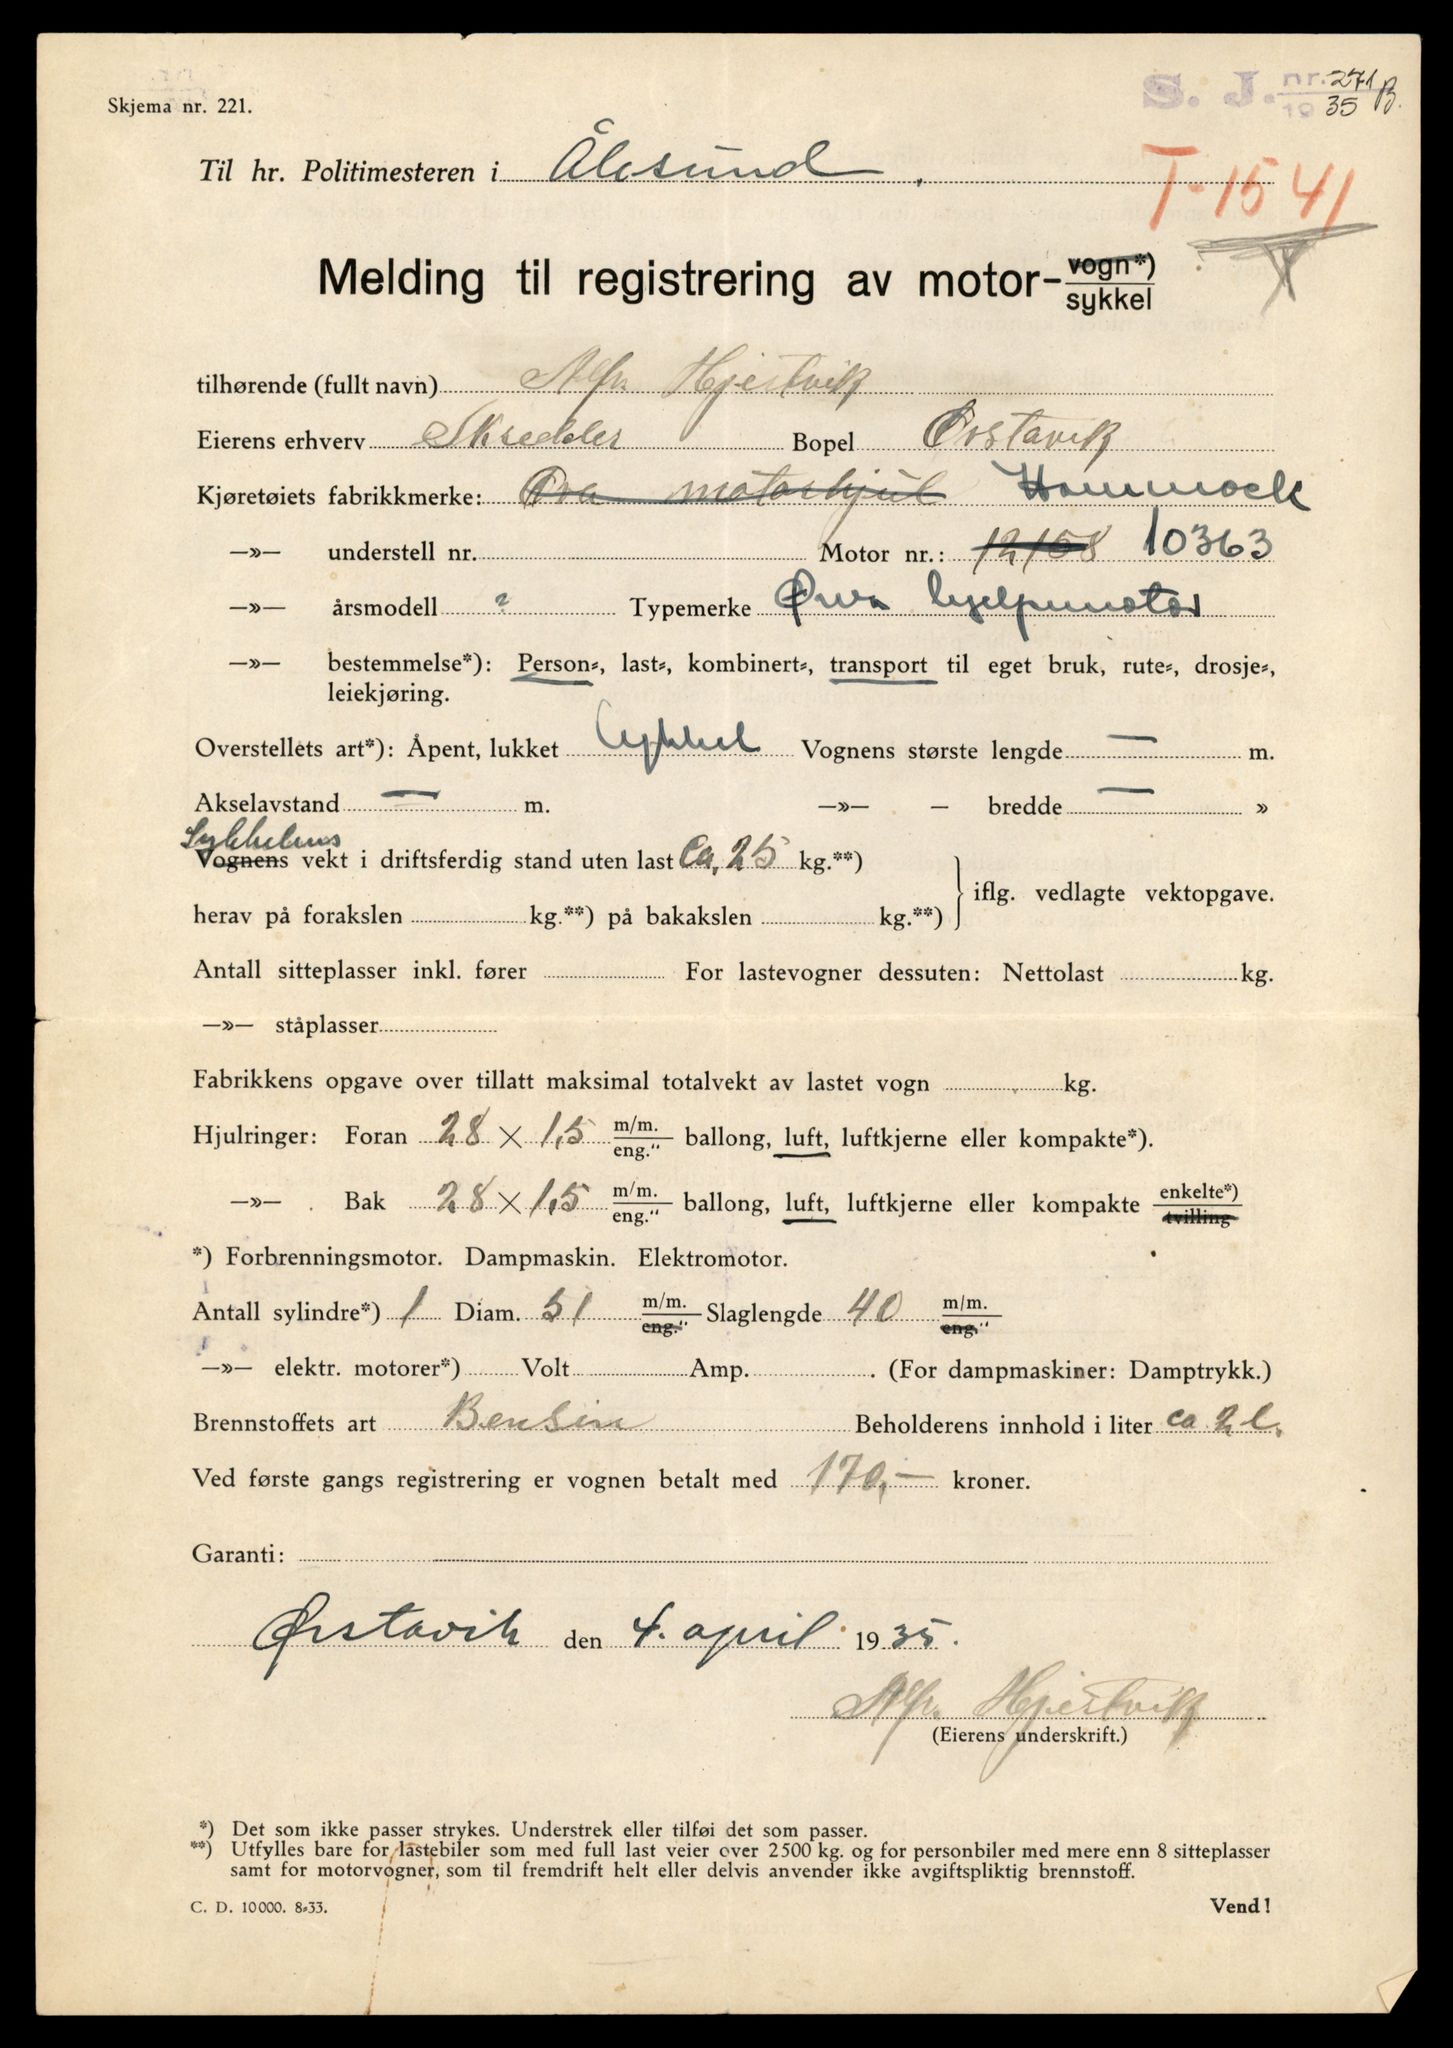 S. J. nr. 271 B.
19 35
Skjema nr. 221.
Til hr. Politimesteren i Ålesund.
T-1541
Melding til registrering av motor-vogn*)
sykkel
tilhørende (fullt navn) Alfr. Hjertvik
Eierens erhverv Skredder Bopel Ørstavik
Kjøretøiets fabrikkmerke: Øra motorhjul Hammock
—»— understell nr. Motor nr.: 12158 10363
—»— årsmodell ? Typemerke Ørva hjelpemotor
—»— bestemmelse*): Person-, last-, kombinert-, transport til eget bruk, rute-, drosje-,
leiekjøring.
Overstellets art*): Åpent, lukket Cykkel Vognens største lengde — m.
Akselavstand — m. —»— — bredde — »
Sykkelens
Vognens vekt i driftsferdig stand uten last ca. 25 kg.**)
iflg. vedlagte vektopgave.
herav på forakslen kg.**) på bakakslen kg.**)
Antall sitteplasser inkl. fører For lastevogner dessuten: Nettolast kg.
—»— ståplasser
Fabrikkens opgave over tillatt maksimal totalvekt av lastet vogn kg.
Hjulringer: Foran 28 × 1,5 m/m. eng." ballong, luft, luftkjerne eller kompakte*).
—»— Bak 28 × 1,5 m/m. eng." ballong, luft, luftkjerne eller kompakte enkelte*) tvilling
*) Forbrenningsmotor. Dampmaskin. Elektromotor.
Antall sylindre*) 1 Diam. 51 m/m. eng." Slaglengde 40 m/m. eng."
—»— elektr. motorer*) Volt Amp. . (For dampmaskiner: Damptrykk.)
Brennstoffets art Bensin Beholderens innhold i liter ca 2 l.
Ved første gangs registrering er vognen betalt med 170,— kroner.
Garanti:
Ørstavik den 4. april 1935.
Alfr. Hjertvik
(Eierens underskrift.)
*) Det som ikke passer strykes. Understrek eller tilføi det som passer.
**) Utfylles bare for lastebiler som med full last veier over 2500 kg. og for personbiler med mere enn 8 sitteplasser
samt for motorvogner, som til fremdrift helt eller delvis anvender ikke avgiftspliktig brennstoff.
C. D. 10000. 8-33.
Vend!